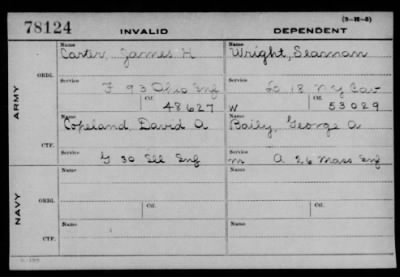 78124
(3-16-3)
INVALID
DEPENDENT
Name
Carter, James H
Name
Wright, Seaman
ORIG.
Service
F 93 Ohio Inf
Service
L 18 NY Cav
Ctf.
48627
W
Ctf.
53029
ARMY
Name
Copeland David A
Name
Baily, George A
CTF.
Service
G 30 Ill Inf
Service
m A 26 Mass Inf
Name
Name
ORIG.
Service
Service
Ctf.
Ctf.
NAVY
Name
Name
CTF.
Service
Service